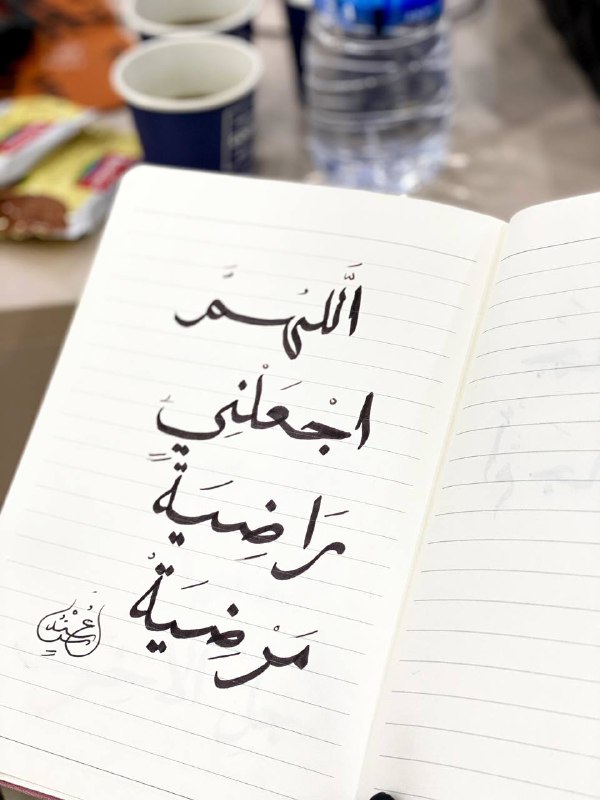 اللَّهُمَّ
اجْعَلْنِي
رَاضِيَةً
مَرْضِيَةً